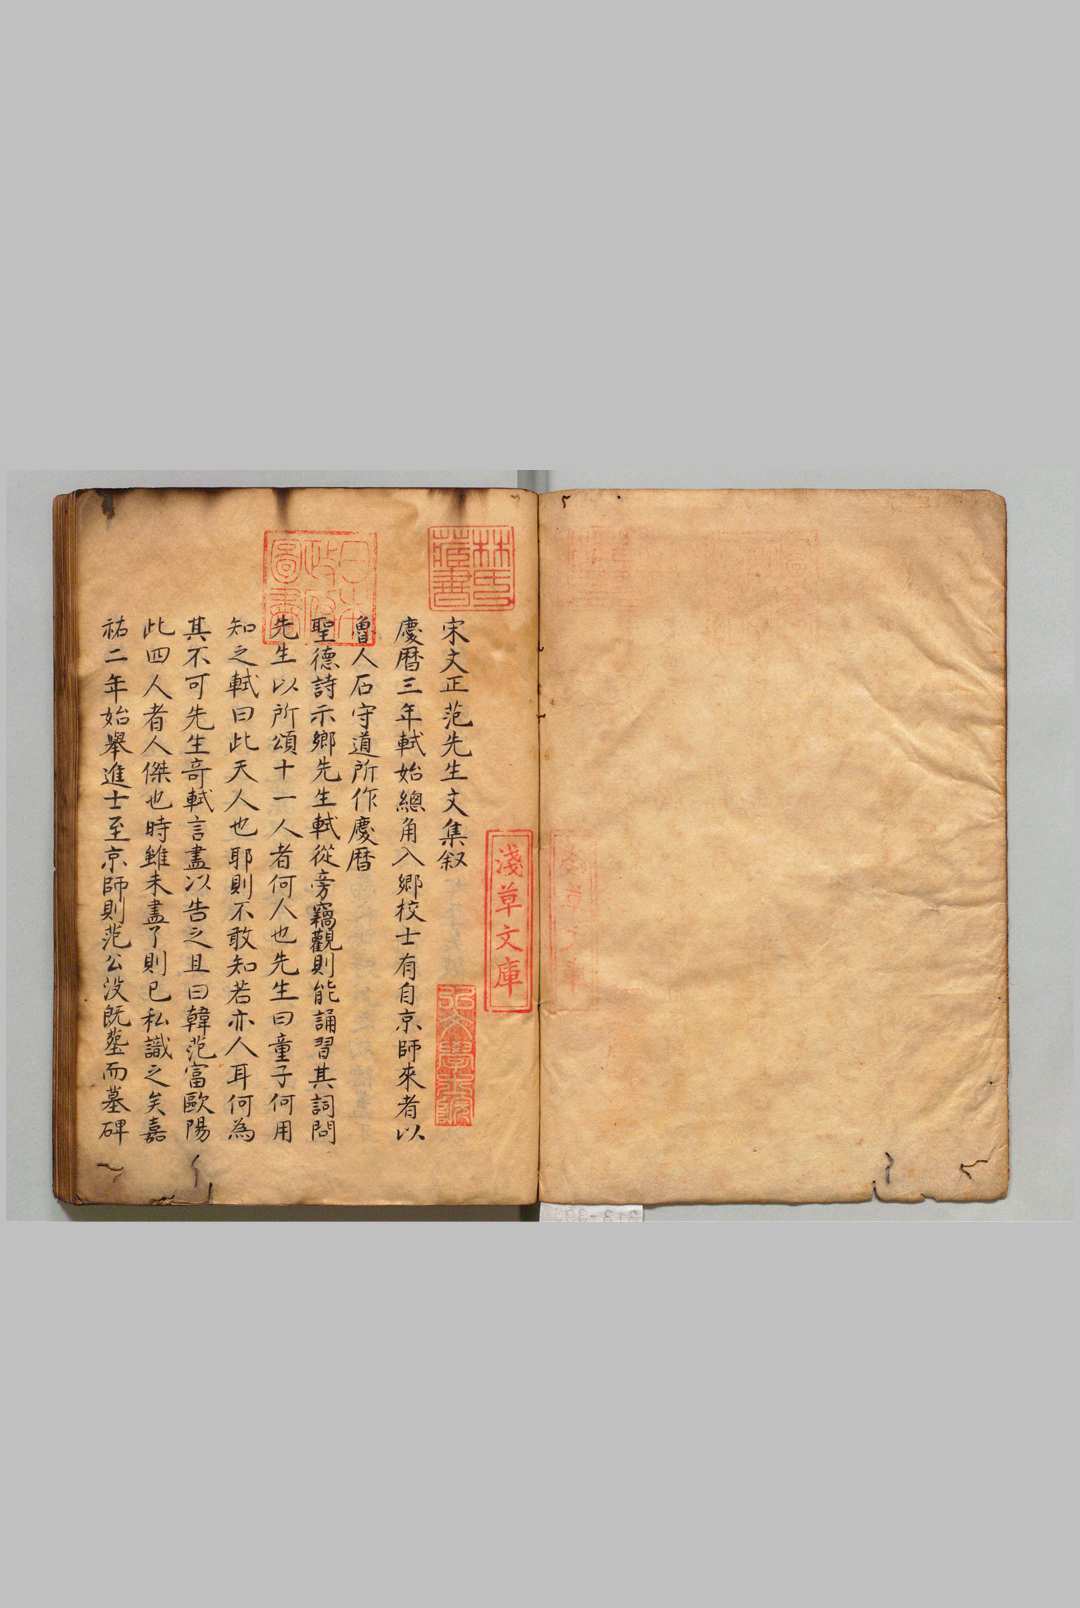 宋文正范先生文集叙
慶暦三年軾始總角入鄉校士有自京師來者以
魯人石守道所作慶暦
聖德詩示鄉先生軾從旁竊觀則能誦習其詞問
先生以所頌十一人者何人也先生曰童子何用
知之軾曰此天人也耶則不敢知若亦人耳何為
其不可先生竒軾言盡以告之且曰韓范富歐陽
此四人者人傑也時雖未盡了則已私識之矣嘉
祐二年始舉進士至京師則范公没既塟而墓碑
林氏藏書
日本政府圖書
淺草文庫
弘文學士院